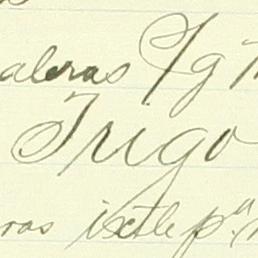 aleras
Trigo
ras ixtle pª